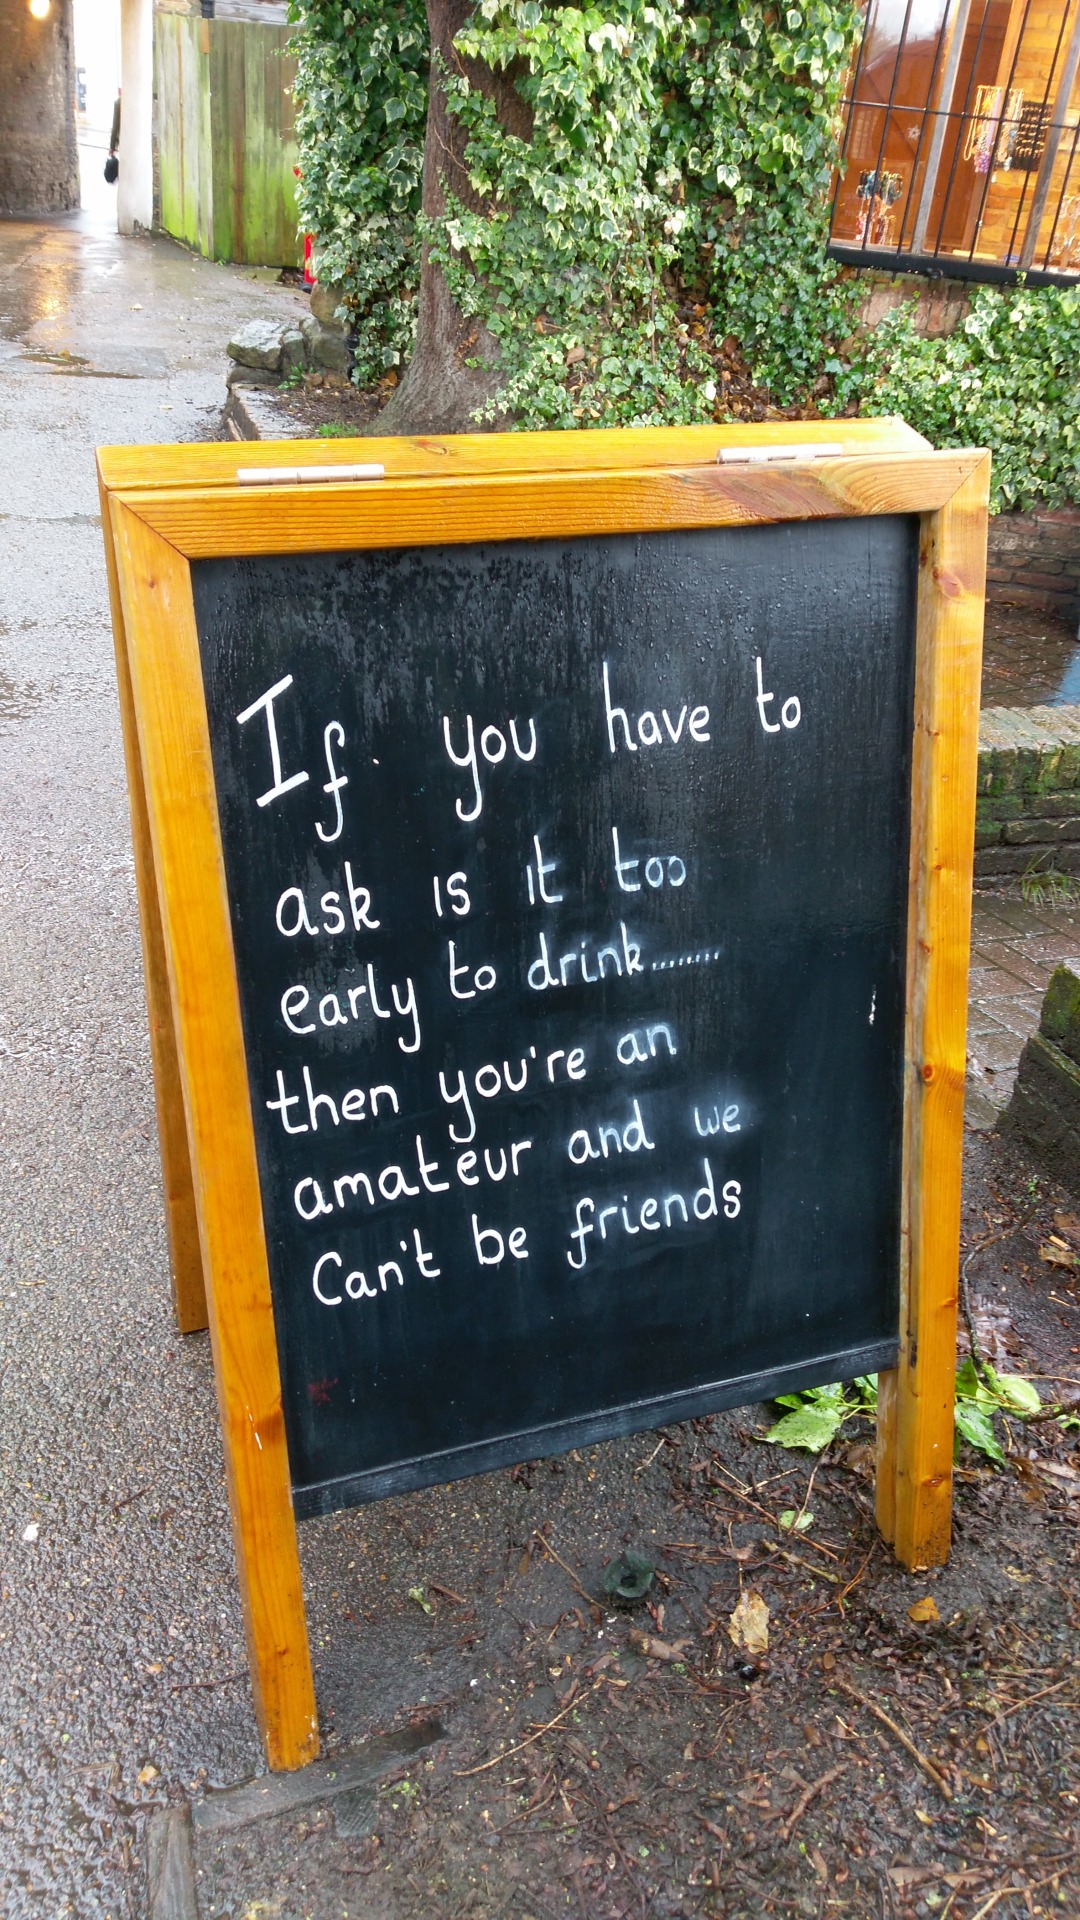 If you have to
ask is it too
early to drink........
then you're an
amateur and we
Can't be friends